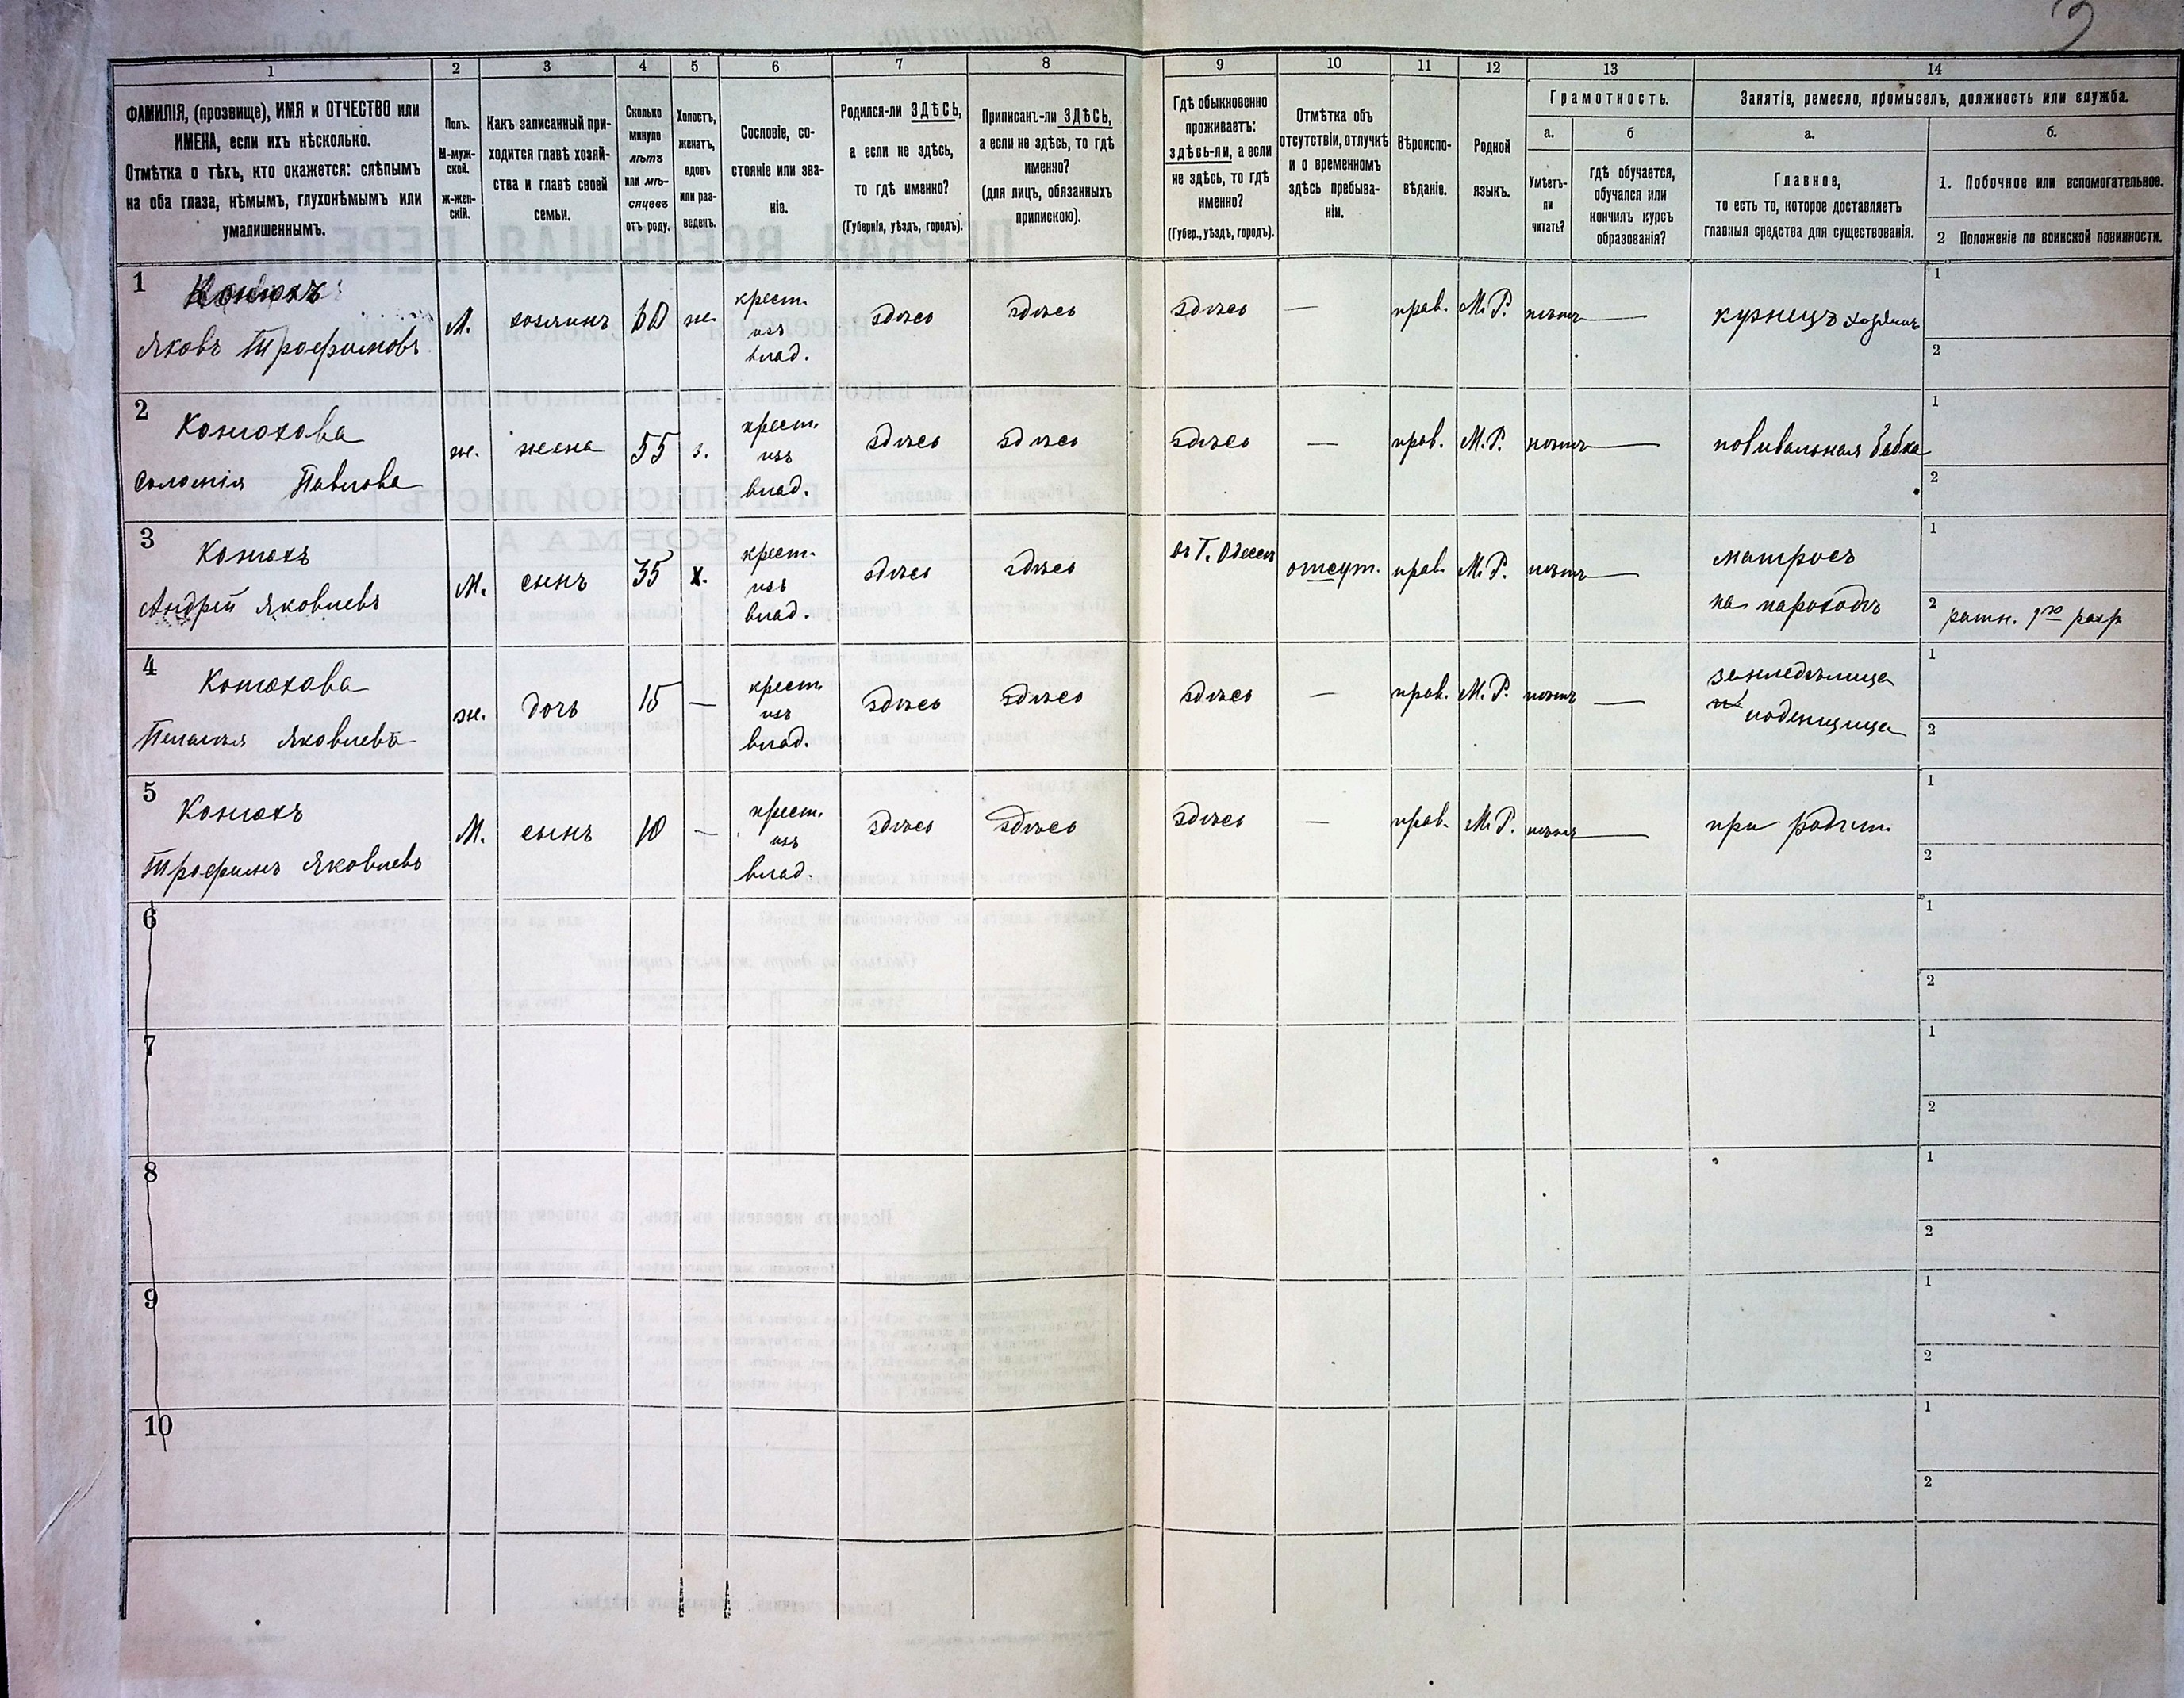 1 2 3 4 5 6 7 8 9 10 11 12 13 14
ФАМИЛІЯ, (прозвище), ИМЯ и ОТЧЕСТВО или
ИМЕНА, если ихъ нѣсколько.
Отмѣтка о тѣхъ, кто окажется: слѣпымъ
на оба глаза, нѣмымъ, глухонѣмымъ или
умалишеннымъ.
Полъ.
М-муж-
ской.
Ж-жен-
скій.
Какъ записанный при-
ходится главѣ хозяй-
ства и главѣ своей
семьи.
Сколько
минуло
лѣтъ
или мѣ-
сяцевъ
отъ роду.
Холостъ,
женатъ,
вдовъ
или раз-
веденъ.
Сословіе, со-
стояніе или зва-
ніе.
Родился-ли ЗДѢСЬ,
а если не здѣсь,
то гдѣ именно?
(Губернія, уѣздъ, городъ).
Приписанъ-ли ЗДѢСЬ,
а если не здѣсь, то гдѣ
именно?
(для лицъ, обязанныхъ
припискою).
Гдѣ обыкновенно
проживаетъ:
здѣсь-ли, а если
не здѣсь, то гдѣ
именно?
(Губер., уѣздъ, городъ).
Отмѣтка объ
отсутствіи, отлучкѣ
и о временномъ
здѣсь пребыва-
ніи.
Вѣроиспо-
вѣданіе.
Родной
языкъ.
Грамотность.
а. б
Умѣетъ-
ли
читать?
гдѣ обучается,
обучался или
кончилъ курсъ
образованія?
Занятіе, ремесло, промыселъ, должность или служба.
а. б.
Главное,
то есть то, которое доставляетъ
главныя средства для существованія.
1. Побочное или вспомогательное.
2 Положеніе по воинской повинности.
1 Конюхъ
Яковъ Трофимовъ
М. хозяинъ 60 ж. крест.
изъ
влад.
здѣсь здѣсь здѣсь — прав. М. Р. нѣтъ — кузнецъ хозяинъ 1
2
2 Конюхова
Соломія Павлова
ж. жена 55 з. крест.
изъ
влад.
здѣсь здѣсь здѣсь — прав. М. Р. нѣтъ — повивальная бабка 1
2
3 Конюхъ
Андрей Яковлевъ
М. сынъ 35 х. крест.
изъ
влад.
здѣсь здѣсь въ Г. Одессѣ отсут. прав. М. Р. нѣтъ — матросъ
на пароходѣ
1
2 ратн. 1го разр
4 Конюхова
Пелагія Яковлева
ж. дочь 15 — крест.
изъ
влад.
здѣсь здѣсь здѣсь — прав. М. Р. нѣтъ — земледѣлица
и поденщица
1
2
5 Конюхъ
Трофимъ Яковлевъ
М. сынъ 10 — крест.
изъ
влад.
здѣсь здѣсь здѣсь — прав. М. Р. нѣтъ — при родит. 1
2
6 1
2
7 1
2
8 1
2
9 1
2
10 1
2